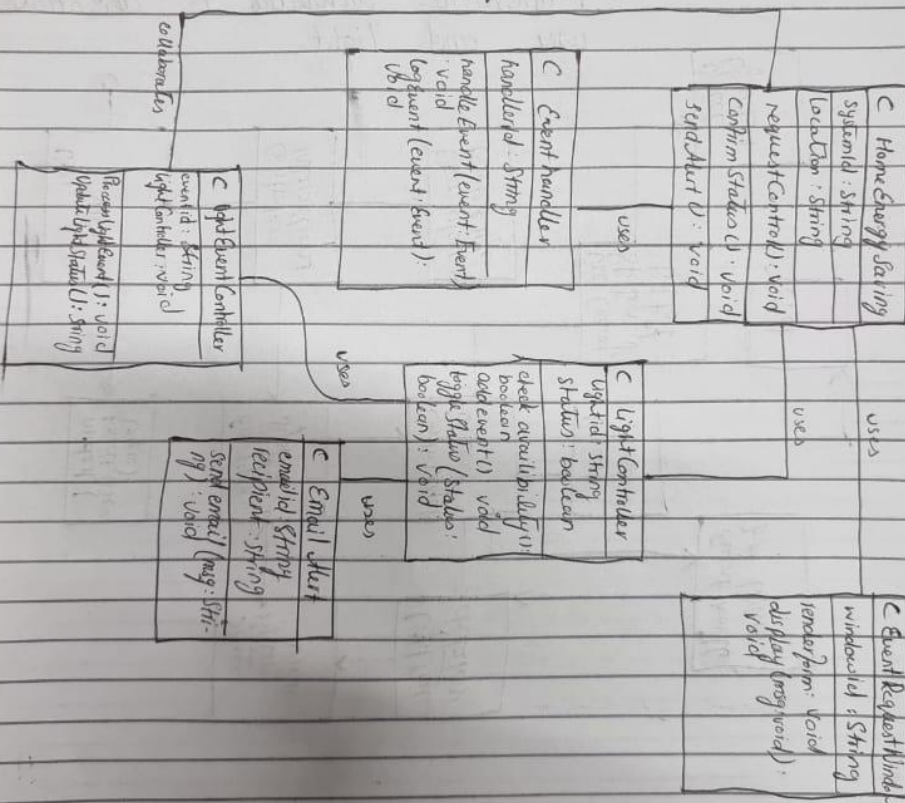 C HomeEnergySaving
systemId : String
Location : String
requestControl() : void
Confirm Status() : void
send Alert () : void
uses
uses
uses
C EventRequestWindow
windowid : String
renderform : void
display (msg:void) :
void
C Eventhandler
handlerId : String
handleEvent (event: Event)
: void
logEvent (event : Event) :
void
C lightController
lightid : string
status : boolean
check availibility() :
boolean
addevent() void
toggle Status (Status :
boolean) : void
collaborates
uses
uses
C lightEventController
eventid : String
lightController : void
ProcesslightEvent() : void
UpdatelightStatus() : String
C Email Alert
emailid String
recipient : String
send email (msg : Stri-
ng) : void